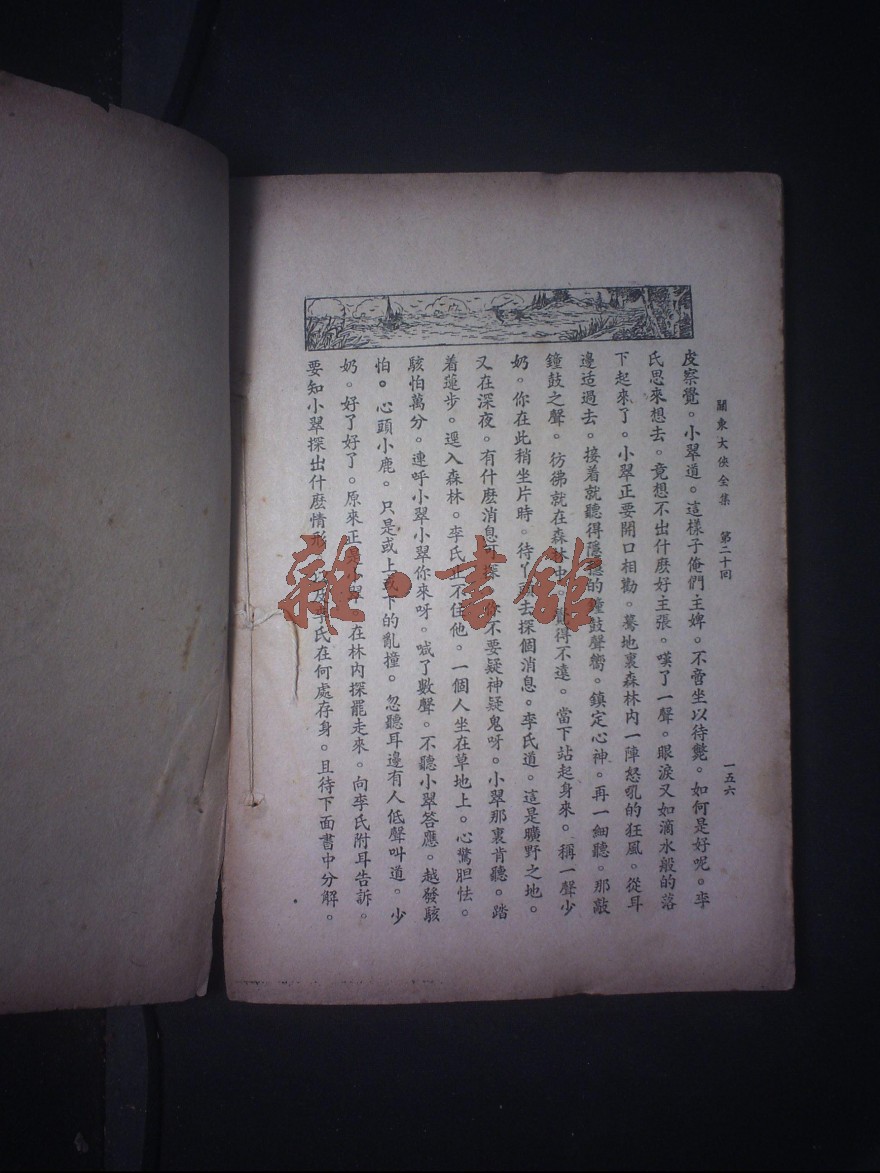 關東大俠全集 第二十回 一五六
皮察覺。小翠道。這樣子俺們主婢。不啻坐以待斃。如何是好呢。李
氏思來想去。竟想不出什麽好主張。嘆了一聲。眼淚又如滴水般的落
下起來了。小翠正要開口相勸。驀地裏森林內一陣怒吼的狂風。從耳
邊适過去。接着就聽得隱隱的鐘鼓聲嚮。鎮定心神。再一細聽。那敲
鐘鼓之聲。彷彿就在森林中。覺得不遠。當下站起身來。稱一聲少
奶。你在此稍坐片時。待丫頭去探個消息。李氏道。這是曠野之地。
又在深夜。有什麽消息可探。你不要疑神疑鬼呀。小翠那裏肯聽。踏
着蓮步。逕入森林。李氏止不住他。一個人坐在草地上。心驚胆怯。
駭怕萬分。連呼小翠小翠你來呀。喊了數聲。不聽小翠答應。越發駭
怕。心頭小鹿。只是或上或下的亂撞。忽聽耳邊有人低聲叫道。少
奶。好了好了。原來正是小翠。在林內探罷走來。向李氏附耳告訴。
要知小翠探出什麽情形。以及李氏在何處存身。且待下面書中分解。
雜·書館